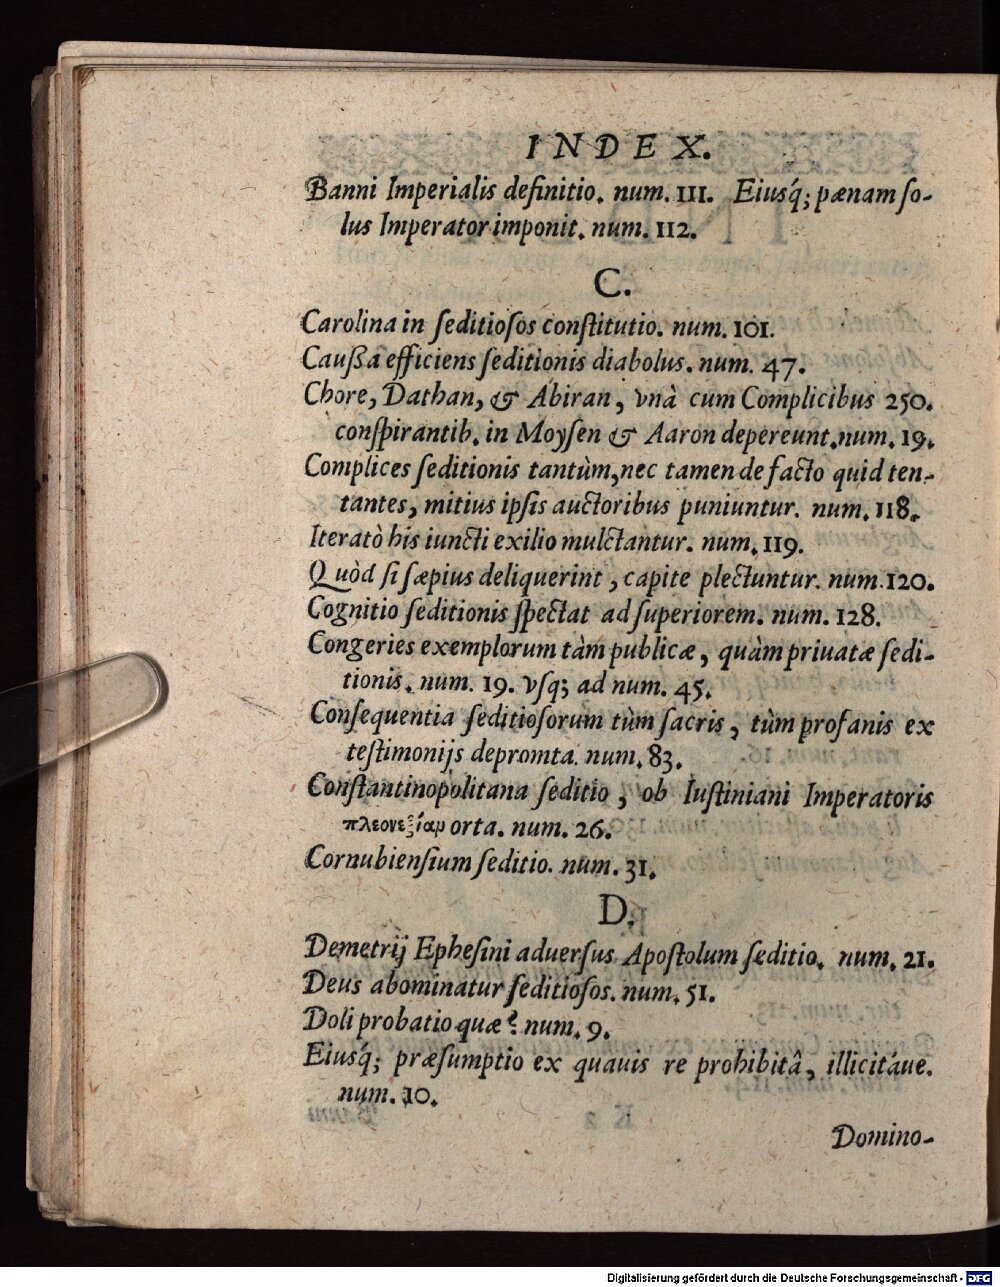 INDEX.
Banni Imperialis definitio. num. 111. Eiusq́; pænam ſo-
lus Imperator imponit. num. 112.
C.
Carolina in ſeditioſos conſtitutio. num. 101.
Cauſſa efficiens ſeditionis diabolus. num. 47.
Chore, Dathan, & Abiran, vnà cum Complicibus 250.
conſpirantib. in Moyſen & Aaron depereunt. num. 19.
Complices ſeditionis tantùm, nec tamen de facto quid ten-
tantes, mitius ipſis auctoribus puniuntur. num. 118.
Iteratò his iuncti exilio mulctantur. num. 119.
Quòd ſi ſæpius deliquerint, capite plectuntur. num. 120.
Cognitio ſeditionis ſpectat ad ſuperiorem. num. 128.
Congeries exemplorum tàm publicæ, quàm priuatæ ſedi-
tionis. num. 19. vſq; ad num. 45.
Conſequentia ſeditioſorum tùm ſacris, tùm profanis ex
teſtimonijs depromta. num. 83.
Conſtantinopolitana ſeditio, ob Iuſtiniani Imperatoris
πλεονεξίαμ orta. num. 26.
Cornubienſium ſeditio. num. 31.
D.
Demetrij Epheſini aduerſus Apoſtolum ſeditio. num. 21.
Deus abominatur ſeditioſos. num. 51.
Doli probatio quæ? num. 9.
Eiusq́; præſumptio ex quauis re prohibitâ, illicitáue.
num. 10.
Domino-
Digitalisierung gefördert durch die Deutsche Forschungsgemeinschaft - DFG